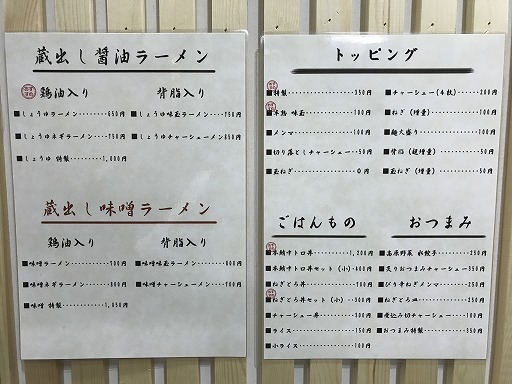 蔵出し醤油ラーメン
鶏油入り 背脂入り
■しょうゆラーメン 650円 ■しょうゆ味玉ラーメン 750円
■しょうゆネギラーメン 750円 ■しょうゆチャーシューメン 850円
■しょうゆ 特製 1,000円
蔵出し味噌ラーメン
鶏油入り 背脂入り
■味噌ラーメン 700円 ■味噌味玉ラーメン 800円
■味噌ネギラーメン 800円 ■味噌チャーシューメン 900円
■味噌 特製 1,050円
トッピング
■特製 350円 ■チャーシュー(4枚) 200円
■本格 味玉 100円 ■ねぎ(増量) 100円
■メンマ 100円 ■麺大盛り 100円
■切り落としチャーシュー 50円 ■背脂(超増量) 50円
■玉ねぎ 0円 ■玉ねぎ(増量) 50円
ごはんもの おつまみ
■本鮪中トロ丼 1,200円 ■高原野菜 水餃子 250円
■本鮪中トロ丼セット(小) 600円 ■炙りおつまみチャーシュー 350円
■ねぎとろ丼 ■ぴり辛ねぎメンマ 250円
■ねぎとろ丼セット(小) ■ねぎとろ皿 250円
■チャーシュー丼 ■煮込み切チャーシュー 100円
■ライス 150円 ■おつまみ特製 350円
■小ライス 100円